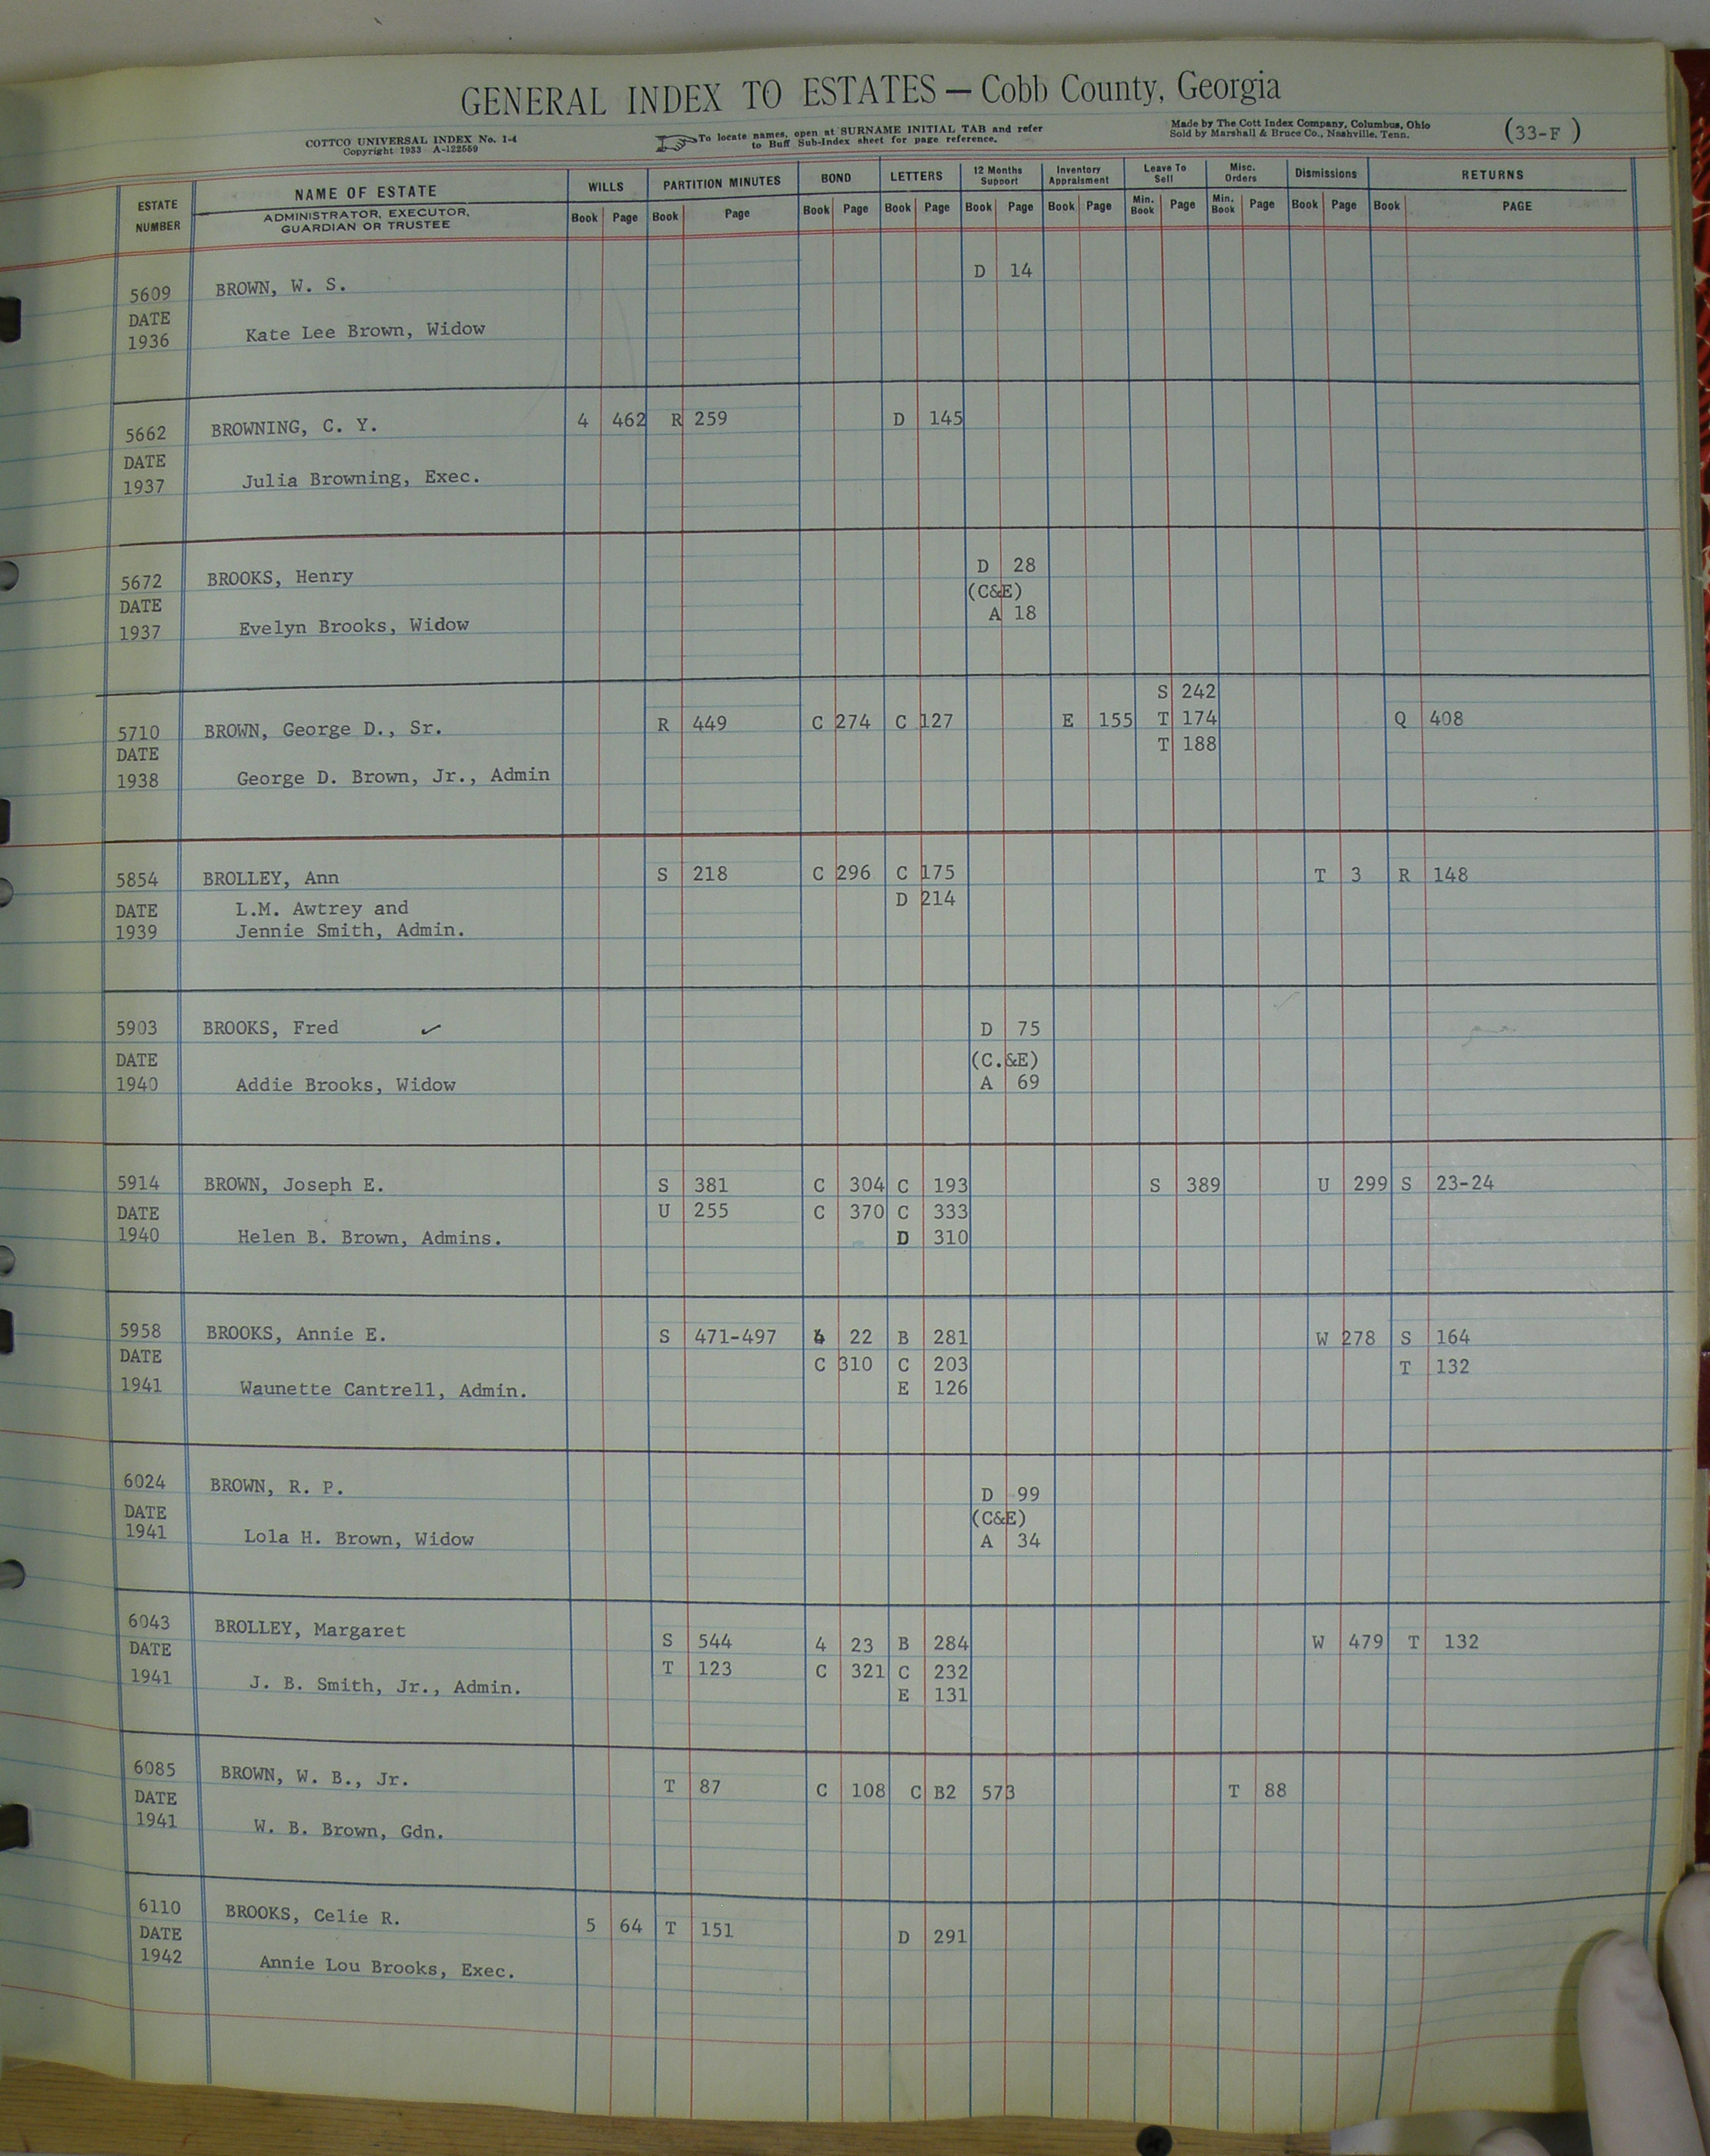 GENERAL INDEX TO ESTATES — Cobb County, Georgia
COTTCO UNIVERSAL INDEX No. 1-4
Copyright 1933 A-122559
To locate names, open at SURNAME INITIAL TAB and refer
to Buff Sub-Index sheet for page reference.
Made by The Cott Index Company, Columbus, Ohio
Sold by Marshall & Bruce Co., Nashville, Tenn.
(33-F )
ESTATE NUMBER NAME OF ESTATE WILLS PARTITION MINUTES BOND LETTERS 12 Months Support Inventory Appraisment Leave To Sell Misc. Orders Dismissions RETURNS
ADMINISTRATOR, EXECUTOR, GUARDIAN OR TRUSTEE Book Page Book Page Book Page Book Page Book Page Book Page Min. Book Page Min. Book Page Book Page Book PAGE
D 14
5609 BROWN, W. S.
DATE
1936 Kate Lee Brown, Widow
5662 BROWNING, C. Y. 4 462 R 259 D 145
DATE
1937 Julia Browning, Exec.
5672 BROOKS, Henry D 28
DATE (C&E)
1937 Evelyn Brooks, Widow A 18
S 242
5710 BROWN, George D., Sr. R 449 C 274 C 127 E 155 T 174 Q 408
DATE T 188
1938 George D. Brown, Jr., Admin
5854 BROLLEY, Ann S 218 C 296 C 175 T 3 R 148
DATE L.M. Awtrey and D 214
1939 Jennie Smith, Admin.
5903 BROOKS, Fred ✓ D 75
DATE (C.&E)
1940 Addie Brooks, Widow A 69
5914 BROWN, Joseph E. S 381 C 304 C 193 S 389 U 299 S 23-24
DATE U 255 C 370 C 333
1940 Helen B. Brown, Admins. D 310
5958 BROOKS, Annie E. S 471-497 22 B 281 W 278 S 164
DATE C 310 C 203 T 132
1941 Waunette Cantrell, Admin. E 126
6024 BROWN, R. P. D 99
DATE (C&E)
1941 Lola H. Brown, Widow A 34
6043 BROLLEY, Margaret S 544 4 23 B 284 W 479 T 132
DATE T 123 C 321 C 232
1941 J. B. Smith, Jr., Admin. E 131
6085 BROWN, W. B., Jr. T 87 C 108 C B2 573 T 88
DATE
1941 W. B. Brown, Gdn.
6110 BROOKS, Celie R. 5 64 T 151 D 291
DATE
1942 Annie Lou Brooks, Exec.